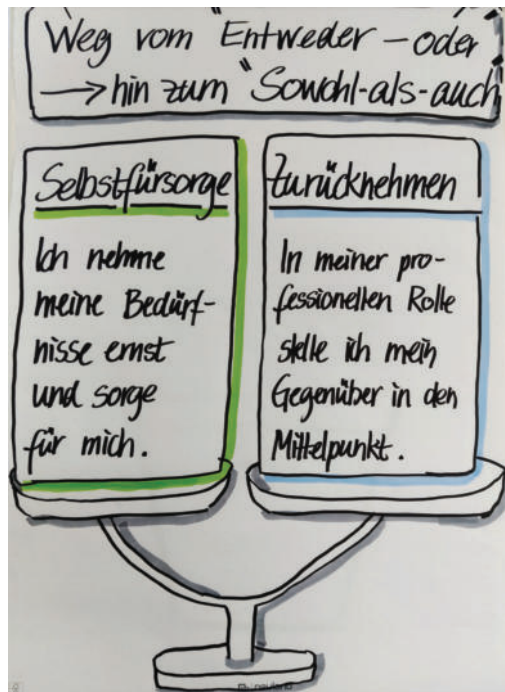 Weg vom "Entweder – oder
→ hin zum "Sowohl-als-auch
Selbstfürsorge
Ich nehme
meine Bedürf-
nisse ernst
und sorge
für mich.
Zurücknehmen
In meiner pro-
fessionellen Rolle
stelle ich mein
Gegenüber in den
Mittelpunkt.